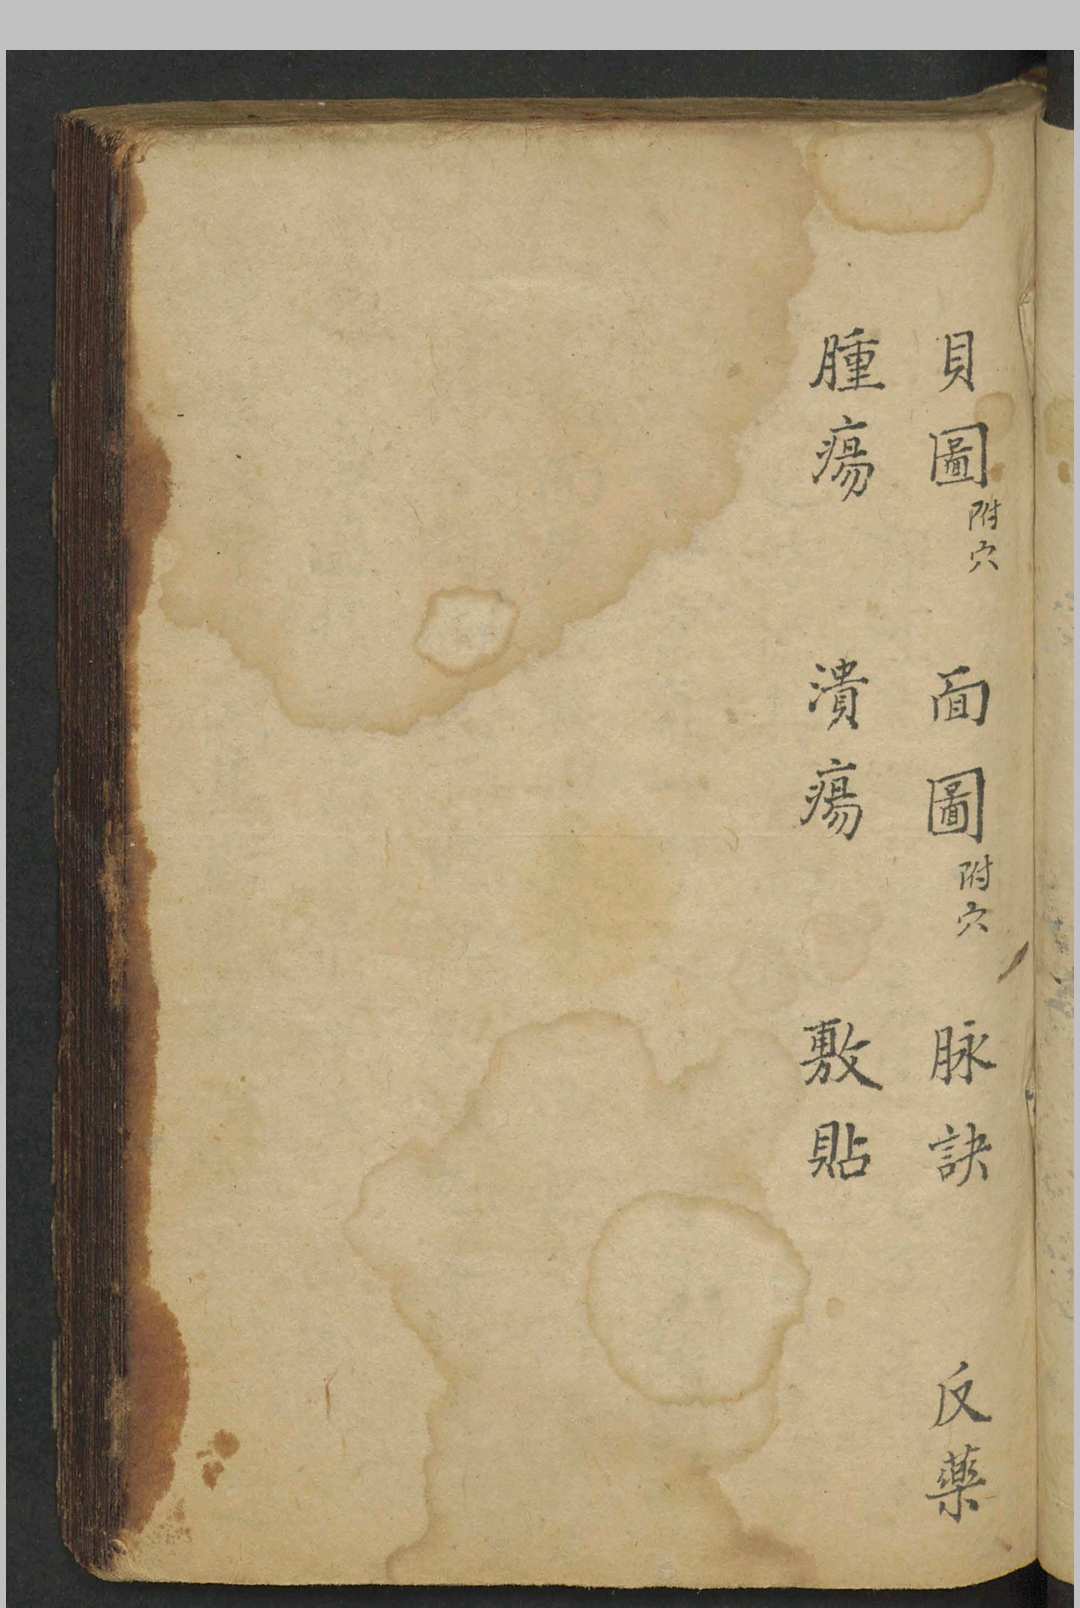 貝圖附穴　面圖附穴　脉訣　反藥
腫瘍　潰瘍　敷貼